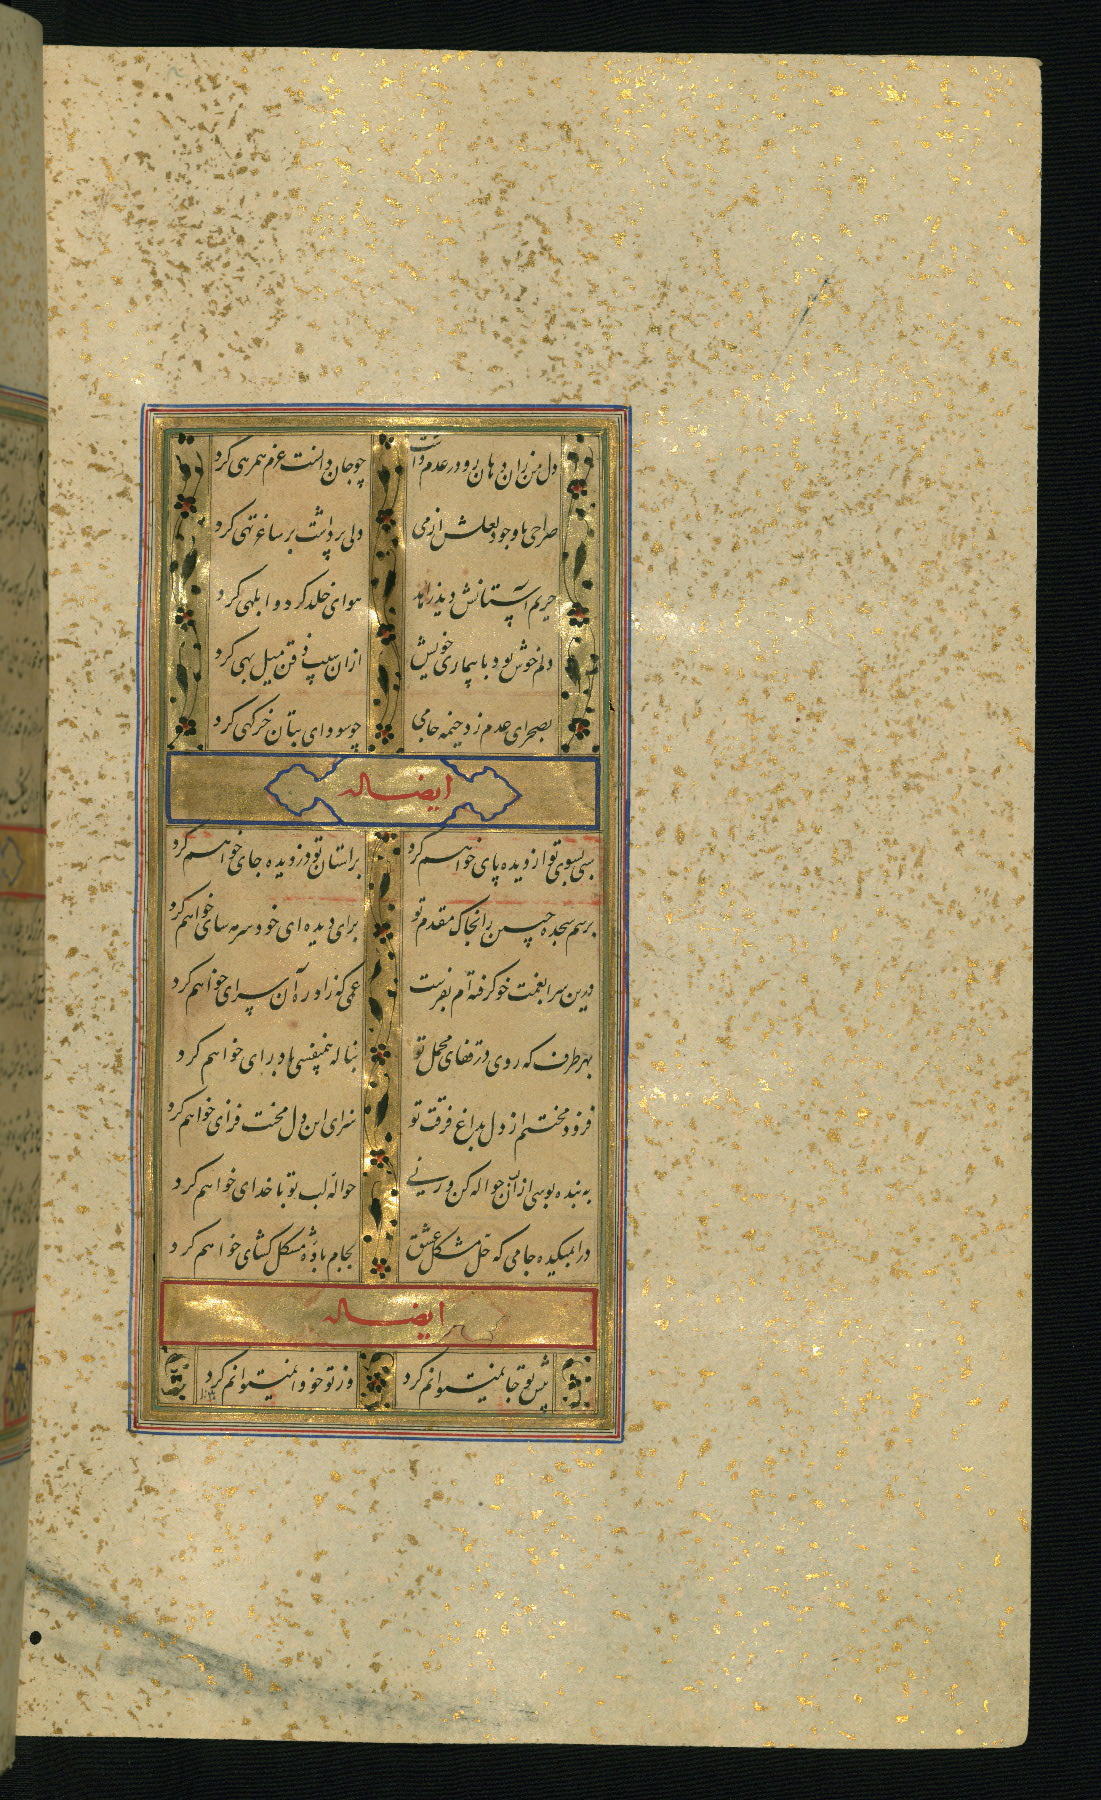 دل من زان دهان رو در عدم داشت چو جان دانست عزم همرهی کرد
صراحی با وجود لعلش از می دلی پر داشت بر ساغر تهی کرد
حریم آستانش دید زاهد هوای خلد کرد و ابلهی کرد
دلم خوش بود با بیماری خویش ازان سیب ذقن میل بهی کرد
بصحرای عدم زد خیمه جامی چو سودای بتان خرگهی کرد
ایضا له
سی بسوی تو از دیده پای خواهم کرد براستان تو در دیده جای خواهم کرد
برسم سجده جبین را بخاک مقدم تو برای دیده ای خود سرمه سای خواهم کرد
درین سرا بغمت خو گرفته ام بفرست غمی که زاد ره آن سرای خواهم کرد
بهر طرف که روی در قفای محمل تو بناله همنفسی با درای خواهم کرد
فزود محنتم از دل بداغ فرقت تو سزای این دل محنت فزای خواهم کرد
به بنده بوسی ازان حواله کن ور نی حواله لب تو با خدای خواهم کرد
درا بمیکده جامی که حل مشکل عشق بجام باده مشکل گشای خواهم کرد
ایضا له
پیش تو جا نمیتوانم کرد وز تو خو وا نمیتوانم کرد